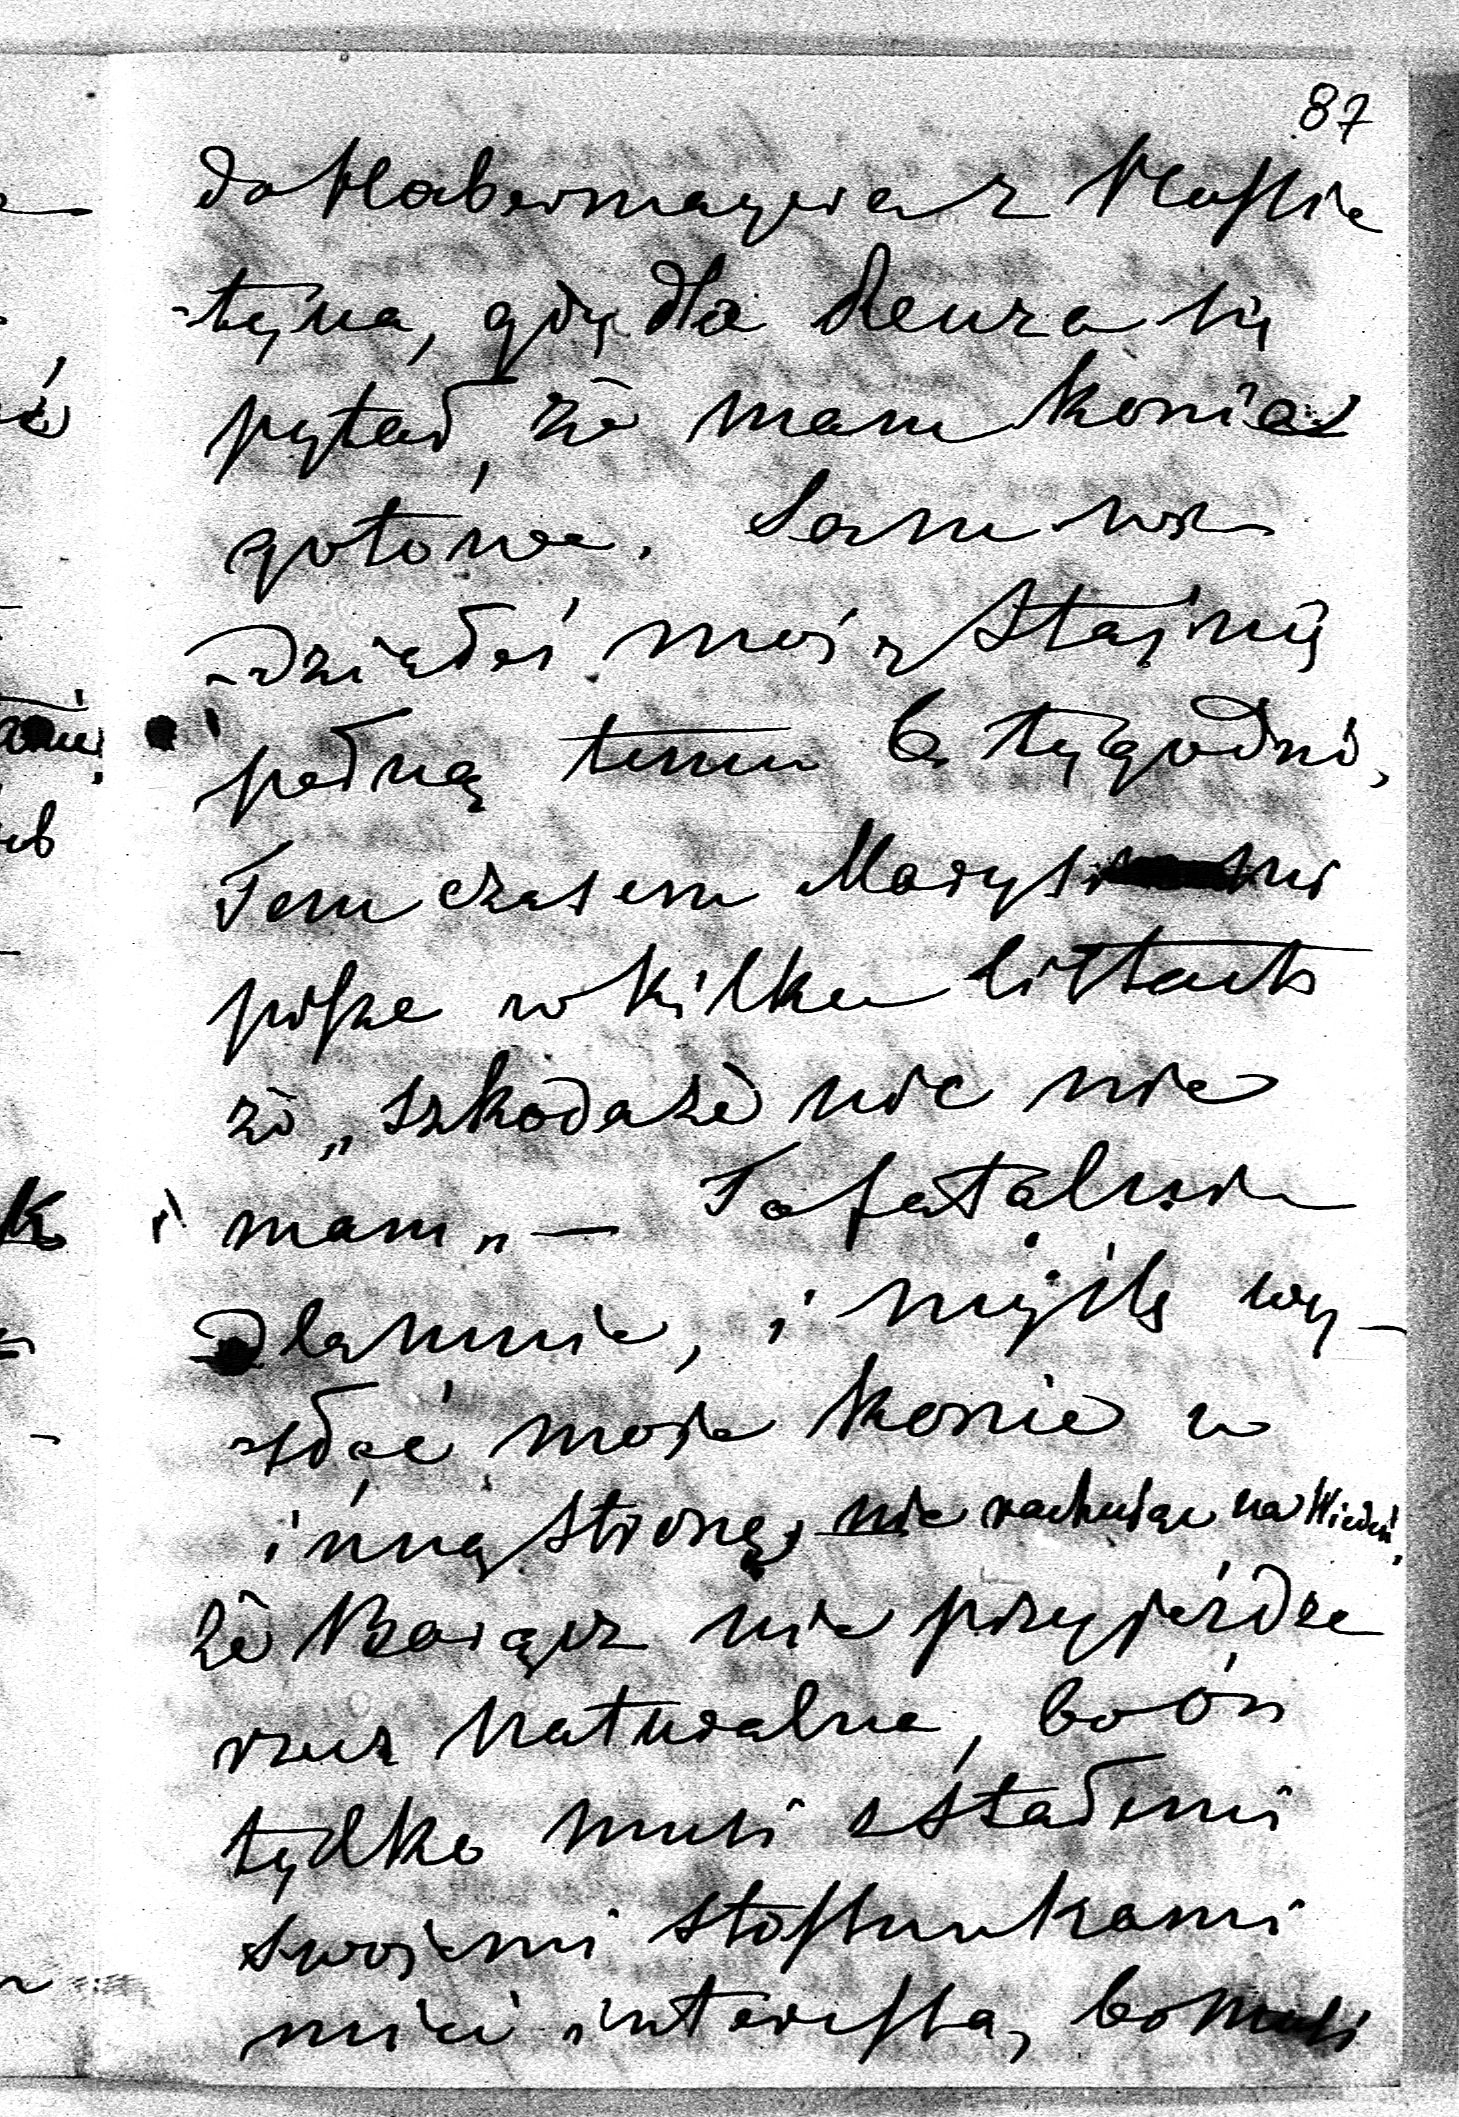 87
do Habermayera z Kossie
-tyna, gdy dla Renza się
pytał, że mam konia
gotowe. Sam wi
-działeś moją stajnię
pełną temu 6. tygodni,
Tem czasem Marys mi
pisze w kilku listach
że „szkoda że nic nie
mam„ — To fatalnie
dla mnie, i myślę wy-
-słać moje konie w
inną stronę, nie rachując na Wiedeń,
że Baiącz nie przyjeżdza
rzecz naturalna, bo ón
tylko musi stałemi
swojemi stossunkami
mieć interessa, bo musi